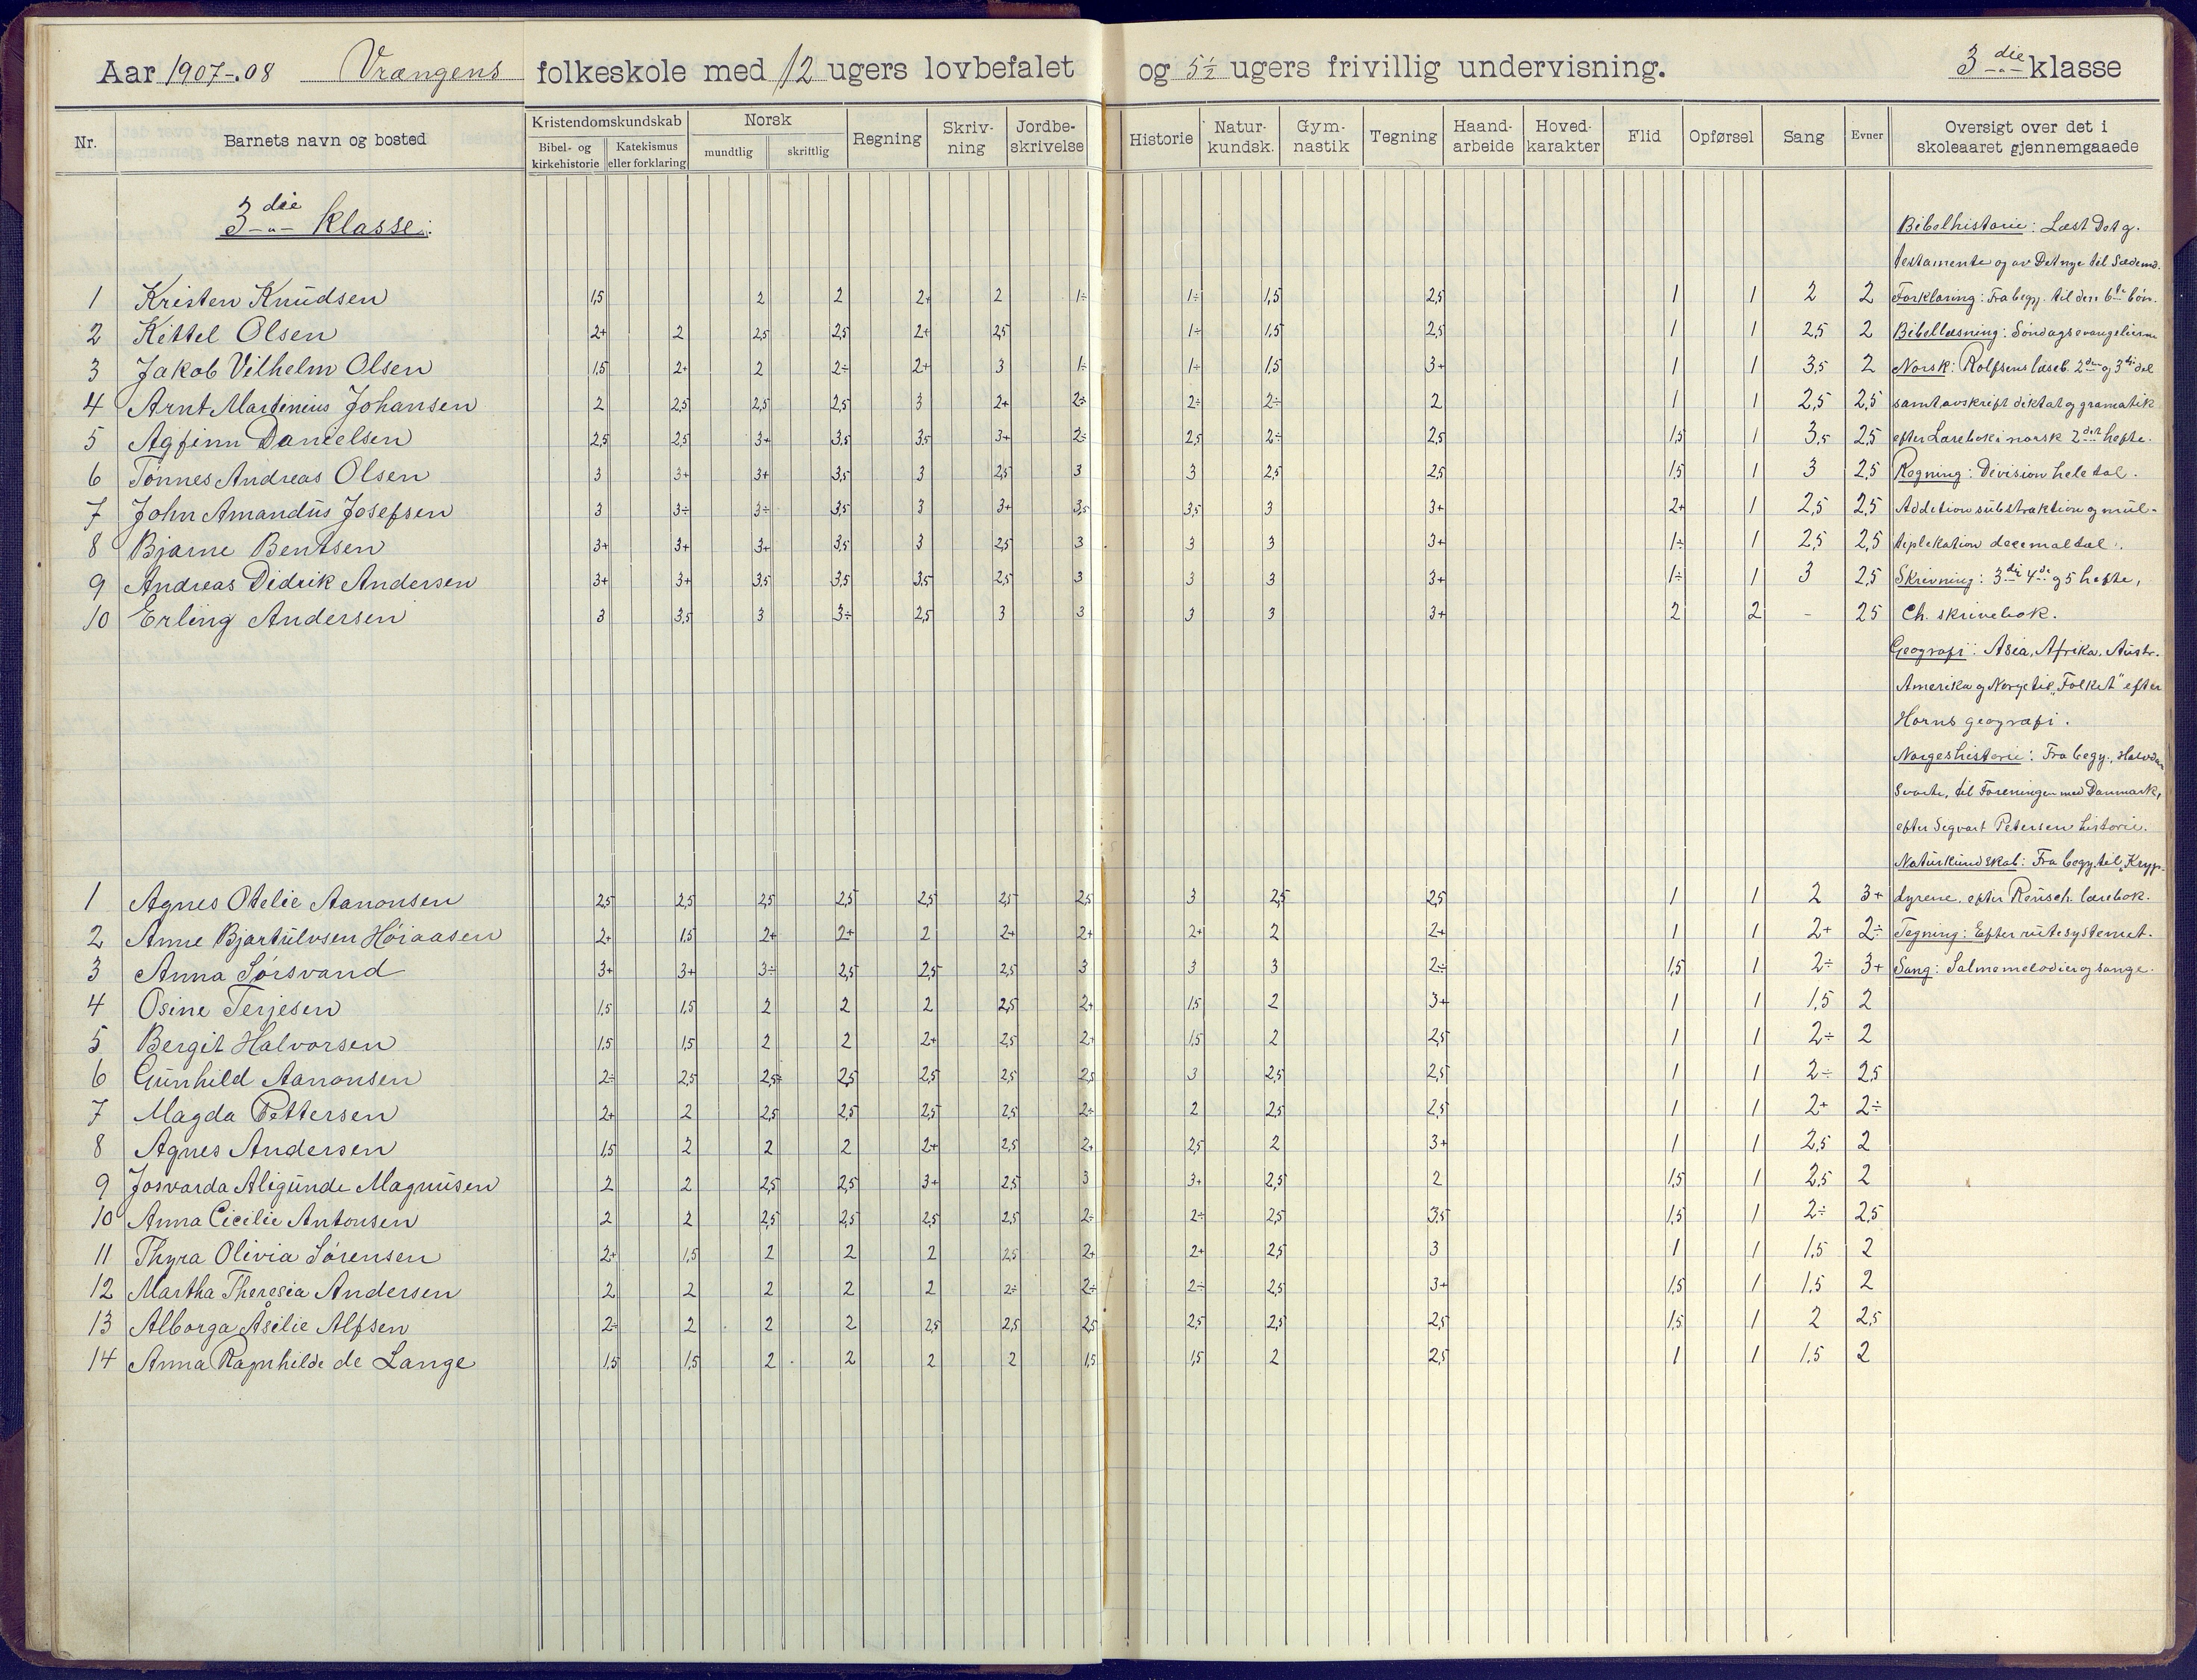 Aar 1907-.08 Vrængens folkeskole med 12 ugers lovbefalet og 5½ ugers frivillig undervisning. 3die klasse
Nr. Barnets navn og bosted Kristendomskundskab Bibel- og kirkehistorie Katekismus eller forklaring Norsk mundtlig skriftlig Regning Skriv-ning Jordbe-skrivelse Historie Natur-kundsk. Gym-nastik Tegning Haand-arbeide Hoved-karakter Flid Opførsel Sang Evner Oversigt over det i skoleaaret gjennemgaaede
3die klasse:
Bibelhistorie: Læst Det g.
testamente og av Det nye til Sædem.
1 Kristen Knudsen 1,5 2 2 2+ 2 1÷ 1÷ 1,5 2,5 1 1 2 2 Forklaring: Fra begy. til den 6te bøn.
2 Kittel Olsen 2+ 2 2,5 2,5 2+ 2,5 1÷ 1,5 2,5 1 1 2,5 2 Bibellæsning: Søndagsevangelierne
3 Jakob Vilhelm Olsen 1,5 2+ 2 2÷ 2+ 3 1÷ 1÷ 1,5 3+ 1 1 3,5 2 Norsk: Rolfsens læseb. 2den og 3die del
4 Arnt Martinius Johansen 2 2,5 2,5 2,5 3 2+ 2÷ 2÷ 2÷ 2 1 1 2,5 2,5 samt avskrift diktat og gramatik
5 Agfinn Danielsen 2,5 2,5 3+ 3,5 3,5 3+ 2÷ 2,5 2÷ 2,5 1,5 1 3,5 2,5 efter Lærebok i norsk 2det hefte.
6 Tønnes Andreas Olsen 3 3+ 3+ 3,5 3 2,5 3 3 2,5 2,5 1,5 1 3 2,5 Regning: Division hele tal.
7 John Amandus Josefsen 3 3÷ 3÷ 3,5 3 3+ 3,5 3,5 3 3+ 2+ 1 2,5 2,5 Addition substraktion og mul-
8 Bjarne Bentsen 3+ 3+ 3+ 3,5 3 2,5 3 3 3 3+ 1÷ 1 2,5 2,5 tiplikation decimaltal.
9 Andreas Didrik Andersen 3+ 3+ 3,5 3,5 3,5 2,5 3 3 3 3+ 1÷ 1 3 2,5 Skrivning: 3die 4de og 5 hefte,
10 Erling Andersen 3 3,5 3 3÷ 2,5 3 3 3 3 3+ 2 2 - 2,5 Ch. skrivebok.
Geografi: Asia, Afrika, Austr.
Amerika og Norge til "Folket" efter
Horns geografi.
Norgeshistorie: Fra begy., Halvdan
Svarte, til Foreningen med Danmark,
efter Sigvart Petersen historie.
Naturkundskab: Fra begy. til "Kryp-
1 Agnes Otelie Aanonsen 2,5 2,5 2,5 2,5 2,5 2,5 2,5 3 2,5 2,5 1 1 2 3+ dyrene. efter Reusch. lærebok.
2 Anne Bjartulvsen Høiaasen 2+ 1,5 2+ 2+ 2 2+ 2+ 2+ 2 2+ 1 1 2+ 2÷ Tegning: Efter rutesystemet.
3 Anna Sørsvand 3+ 3+ 3÷ 2,5 2,5 2,5 3 3 3 2÷ 1,5 1 2÷ 3+ Sang: Salmemelodier og sange.
4 Osine Terjesen 1,5 1,5 2 2 2 2,5 2+ 1,5 2 3+ 1 1 1,5 2
5 Bergit Halvorsen 1,5 1,5 2 2 2+ 2,5 2+ 1,5 2 2,5 1 1 2÷ 2
6 Gunhild Aanonsen 2÷ 2,5 2,5 2,5 2,5 2,5 2,5 3 2,5 2,5 1 1 2÷ 2,5
7 Magda Pettersen 2+ 2 2,5 2,5 2,5 2,5 2÷ 2 2,5 2,5 1 1 2+ 2÷
8 Agnes Andersen 1,5 2 2 2 2+ 2,5 2+ 2,5 2 3+ 1 1 2,5 2
9 Josvarda Aligunde Magnusen 2 2 2,5 2,5 3+ 2,5 3 3+ 2,5 2 1,5 1 2,5 2
10 Anna Cicilie Antonsen 2 2 2,5 2,5 2,5 2,5 2÷ 2÷ 2,5 3,5 1,5 1 2÷ 2,5
11 Thyra Olivia Sørensen 2+ 1,5 2 2 2 2,5 2+ 2+ 2,5 3 1 1 1,5 2
12 Martha Theresia Andersen 2 2 2 2 2 2÷ 2÷ 2÷ 2,5 3+ 1,5 1 1,5 2
13 Alborga Åsilie Alfsen 2÷ 2 2 2 2,5 2,5 2,5 2,5 2,5 2,5 1,5 1 2 2,5
14 Anna Ragnhilde de Lange 1,5 1,5 2 2 2 2 1,5 1,5 2 2,5 1 1 1,5 2